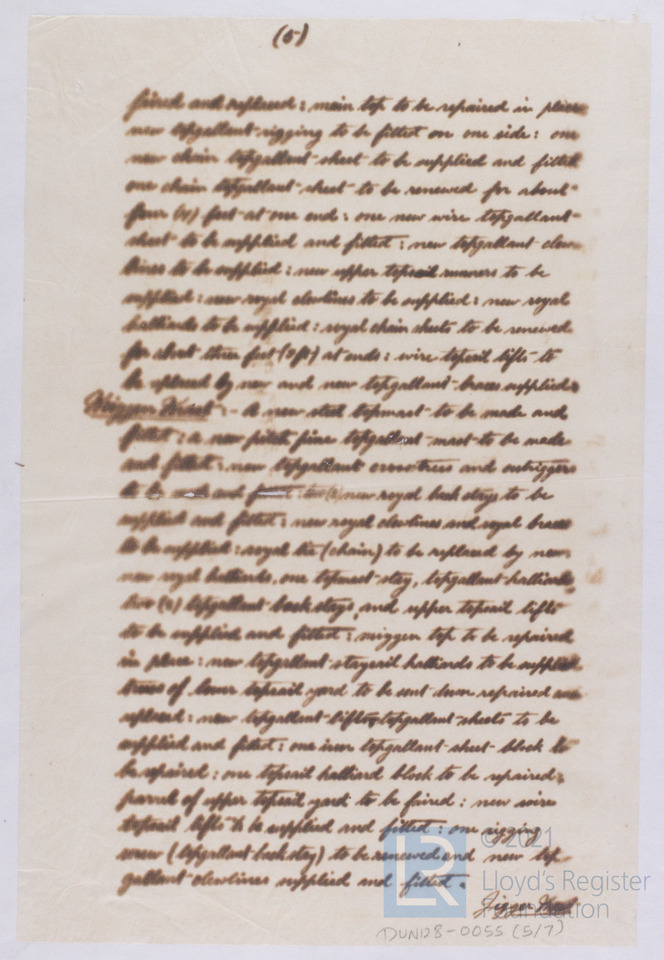 (5)
faired and replaced: main top to be repaired in place
new topgallant rigging to be fitted on one side: one
new chain topgallant sheet to be supplied and fitted
one chain topgallant sheet to be renewed for about
four (4) feet at one end: one new wire topgallant
sheet to be supplied and fitted: new topgallant clew-
lines to be supplied: new upper topsail runners to be
supplied: new royal clewlines to be supplied: new royal
halliards to be supplied: royal chain sheets to be renewed
for about three feet (3ft) at ends: wire topsail lifts to
be replaced by new and new topgallant braces supplied.
Mizzen Mast:- A new steel topmast to be made and
fitted: a new pitch pine topgallant mast to be made
and fitted: new topgallant crosstrees and outriggers
to be made and fitted: two (2) new royal back stays to be
supplied and fitted: new royal clewlines and royal braces
to be supplied: royal tie (chain) to be replaced by new,
new royal halliards, one topmast stay, topgallant halliards,
two (2) topgallant back stays, and upper topsail lifts
to be supplied and fitted: mizzen top to be repaired
in place: new topgallant staysail halliards to be supplied
truss of lower topsail yard to be sent down repaired and
replaced: new topgallant lifts, topgallant sheets to be
supplied and fitted: one iron topgallant sheet block to
be repaired: one topsail halliard block to be repaired:
parrel of upper topsail yard to be faired: new wire
topsail lifts to be supplied and fitted: one rigging
screw (topgallant back stay) to be renewed and new top-
gallant clewlines supplied and fitted.
Jigger Mast
© 2021
Lloyd's Register
Foundation
LR
DUN128-0055 (5/7)